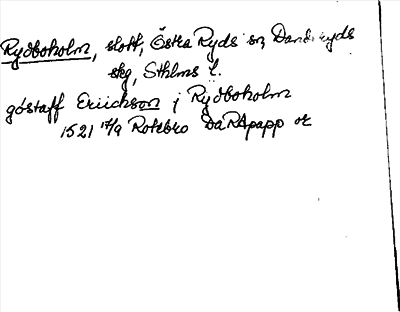 Rydboholm, slott, Östra Ryds sn, Danderyds
skg, Sthlms l.
göstaff Eriichson j Rydboholm
1521 17/9 Rotebro DaRApapp or